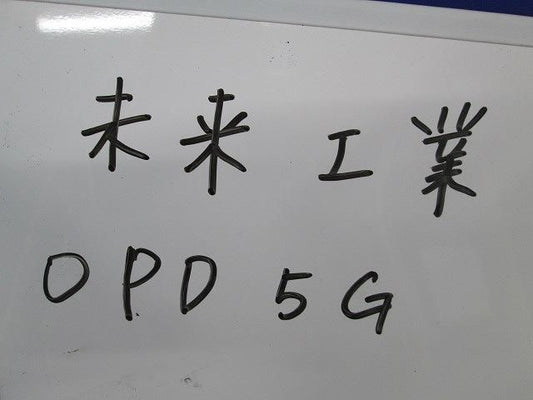 未来工業
OPD 5G